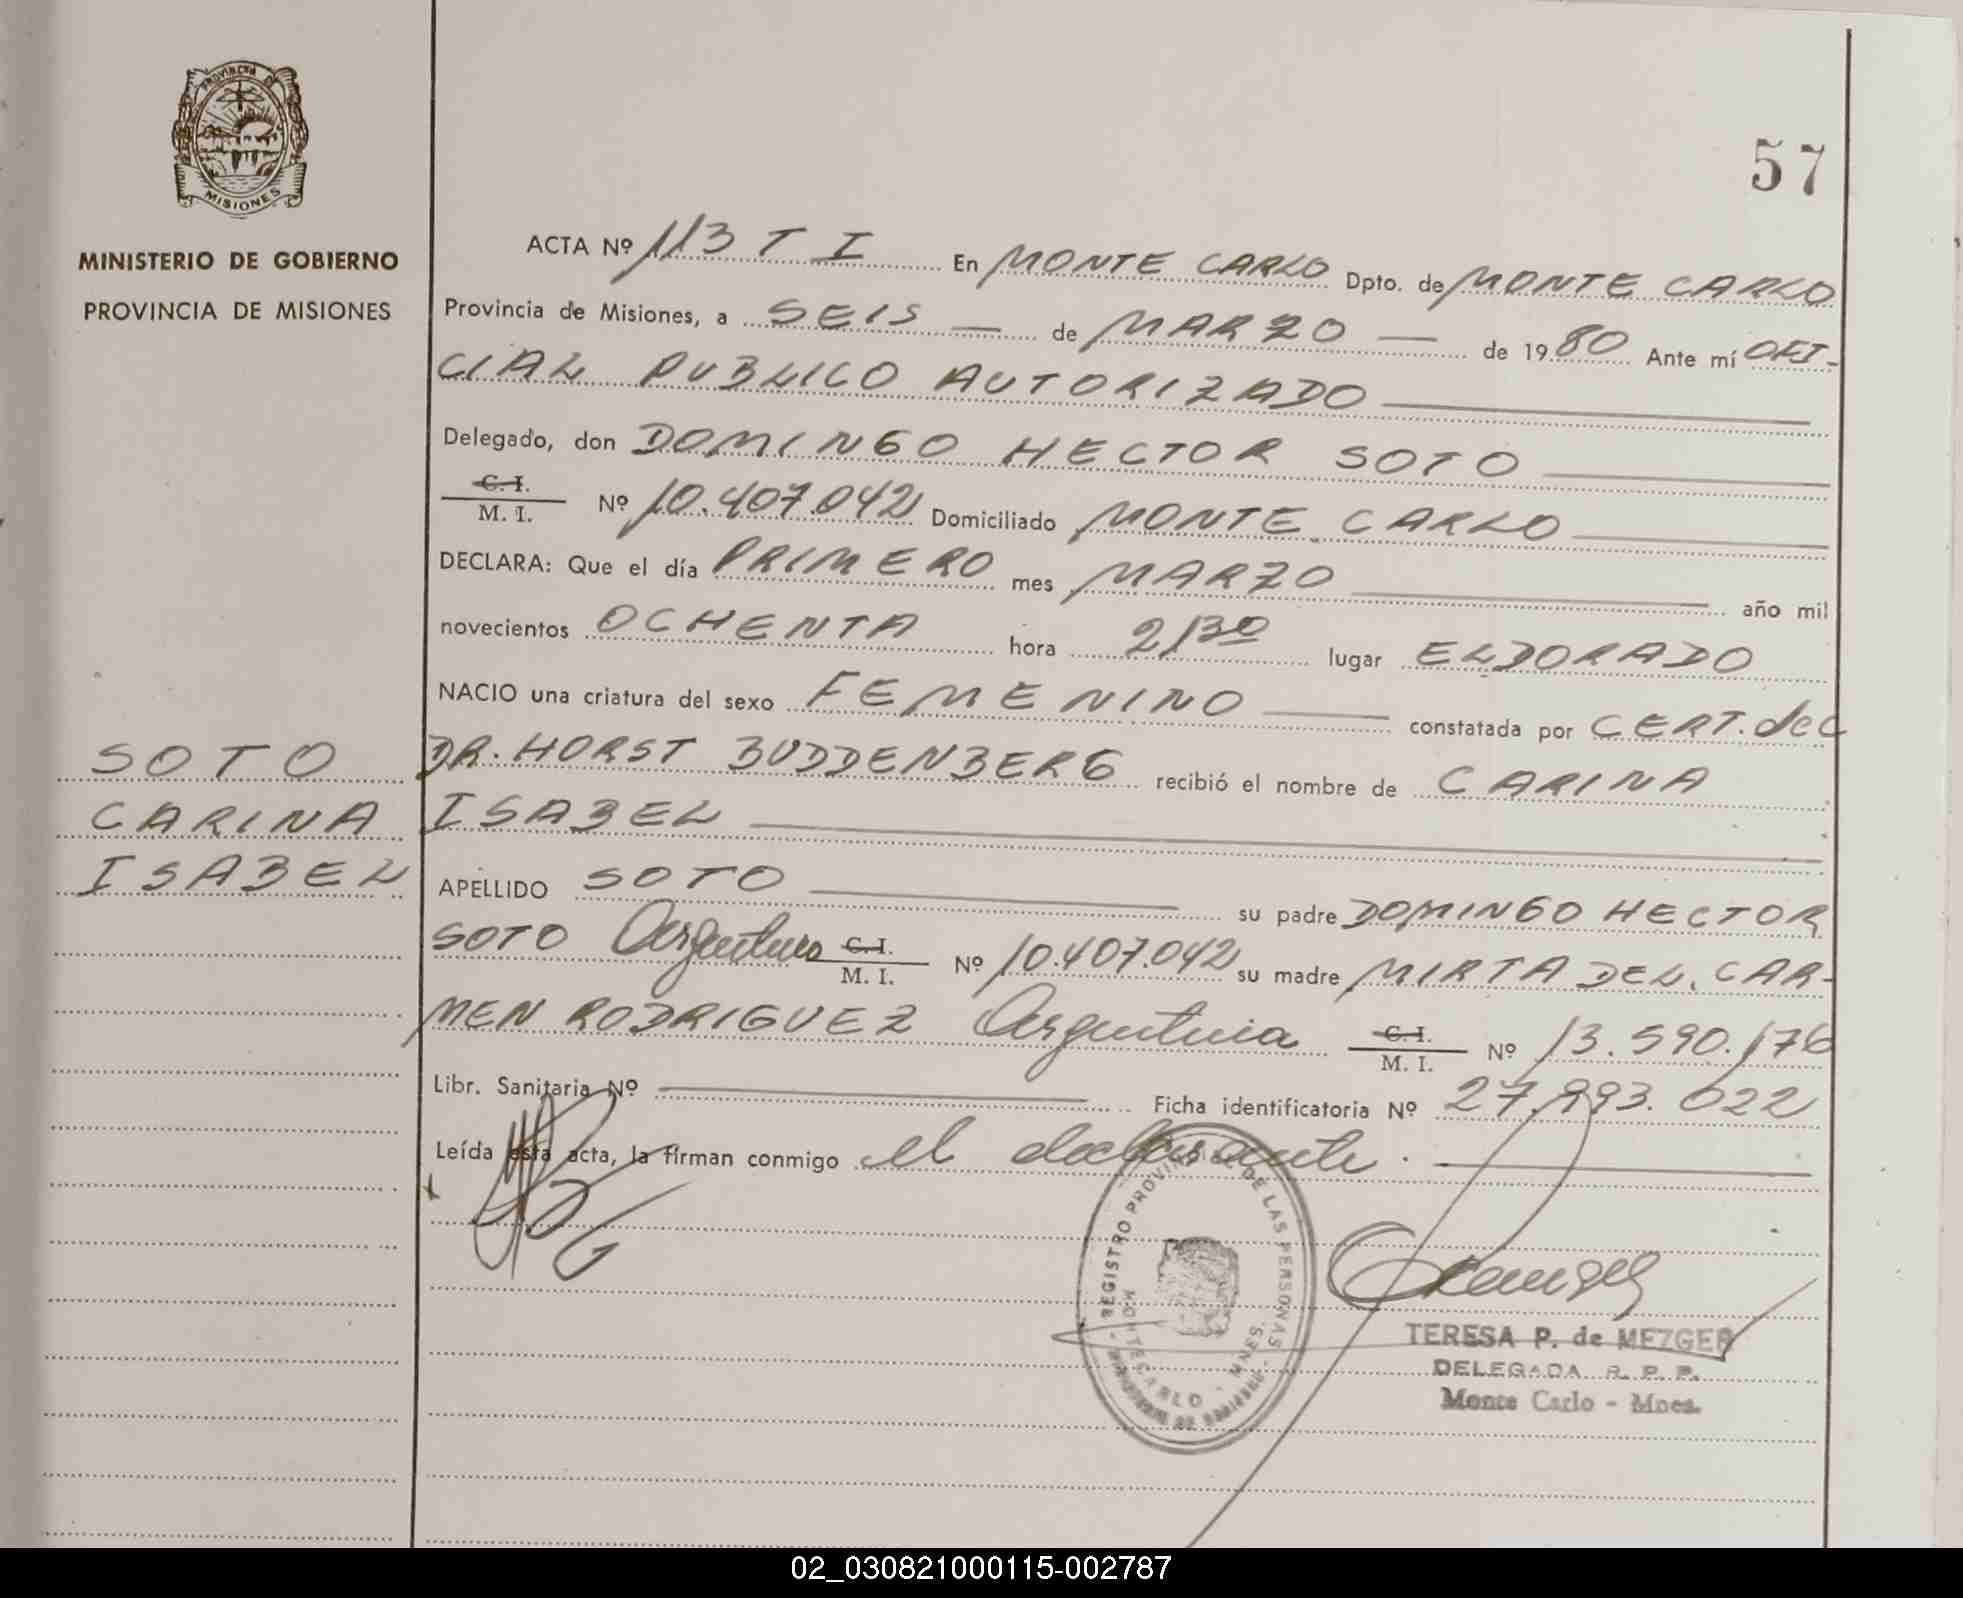 PROVINCIA DE
MISIONES
MINISTERIO DE GOBIERNO
PROVINCIA DE MISIONES
57
ACTA Nº 113 T I En MONTE CARLO Dpto. de MONTE CARLO
Provincia de Misiones, a SEIS — de MARZO — de 1980 Ante mí OFI-
CIAL PUBLICO AUTORIZADO
Delegado, don DOMINGO HECTOR SOTO
C. I.
M. I. Nº 10.407.042 Domiciliado MONTE CARLO
DECLARA: Que el día PRIMERO mes MARZO año mil
novecientos OCHENTA hora 2,30 lugar ELDORADO
NACIO una criatura del sexo FEMENINO constatada por CERT. del
SOTO DR. HORST BUDDENBERG recibió el nombre de CARINA
CARINA ISABEL
ISABEL APELLIDO SOTO su padre DOMINGO HECTOR
SOTO Argentino C. I.
M. I. Nº 10.407.042 su madre MIRTA DEL CAR-
MEN RODRIGUEZ Argentina C. I.
M. I. Nº 13.590.176
Libr. Sanitaria Nº Ficha identificatoria Nº 27.993.022
Leída esta acta, la firman conmigo el declarante.
REGISTRO PROVINCIAL DE LAS PERSONAS
MONTECARLO - MNES.
TERESA P. de MEZGER
DELEGADA R. P. P.
Monte Carlo - Mnes.
02_030821000115-002787